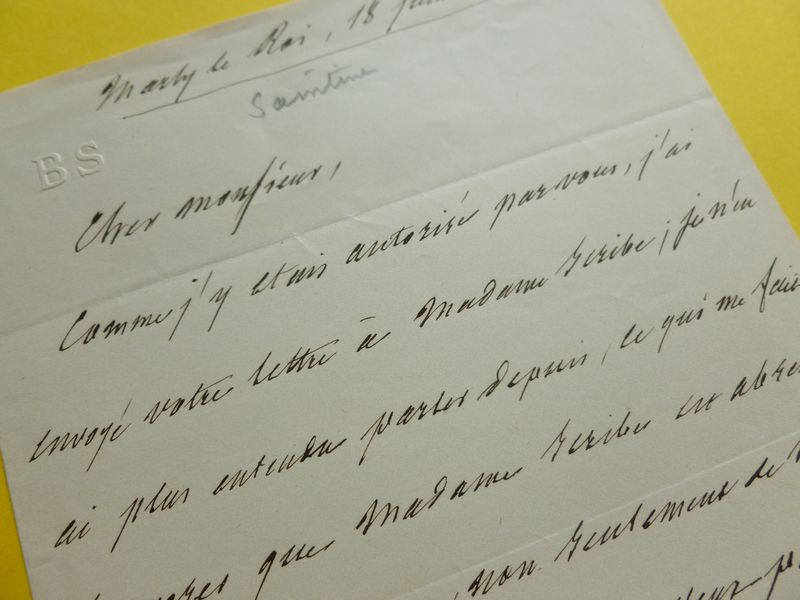 Marly le Roi, 18
Saintine
BS
Cher monsieur,
Comme j'y etais autorisé par vous, j'ai
envoyé votre lettre à Madame Scribe ; je n'en
ai plus entendu parler depuis, ce qui me fait
que Madame Scribe est
, non seulement de